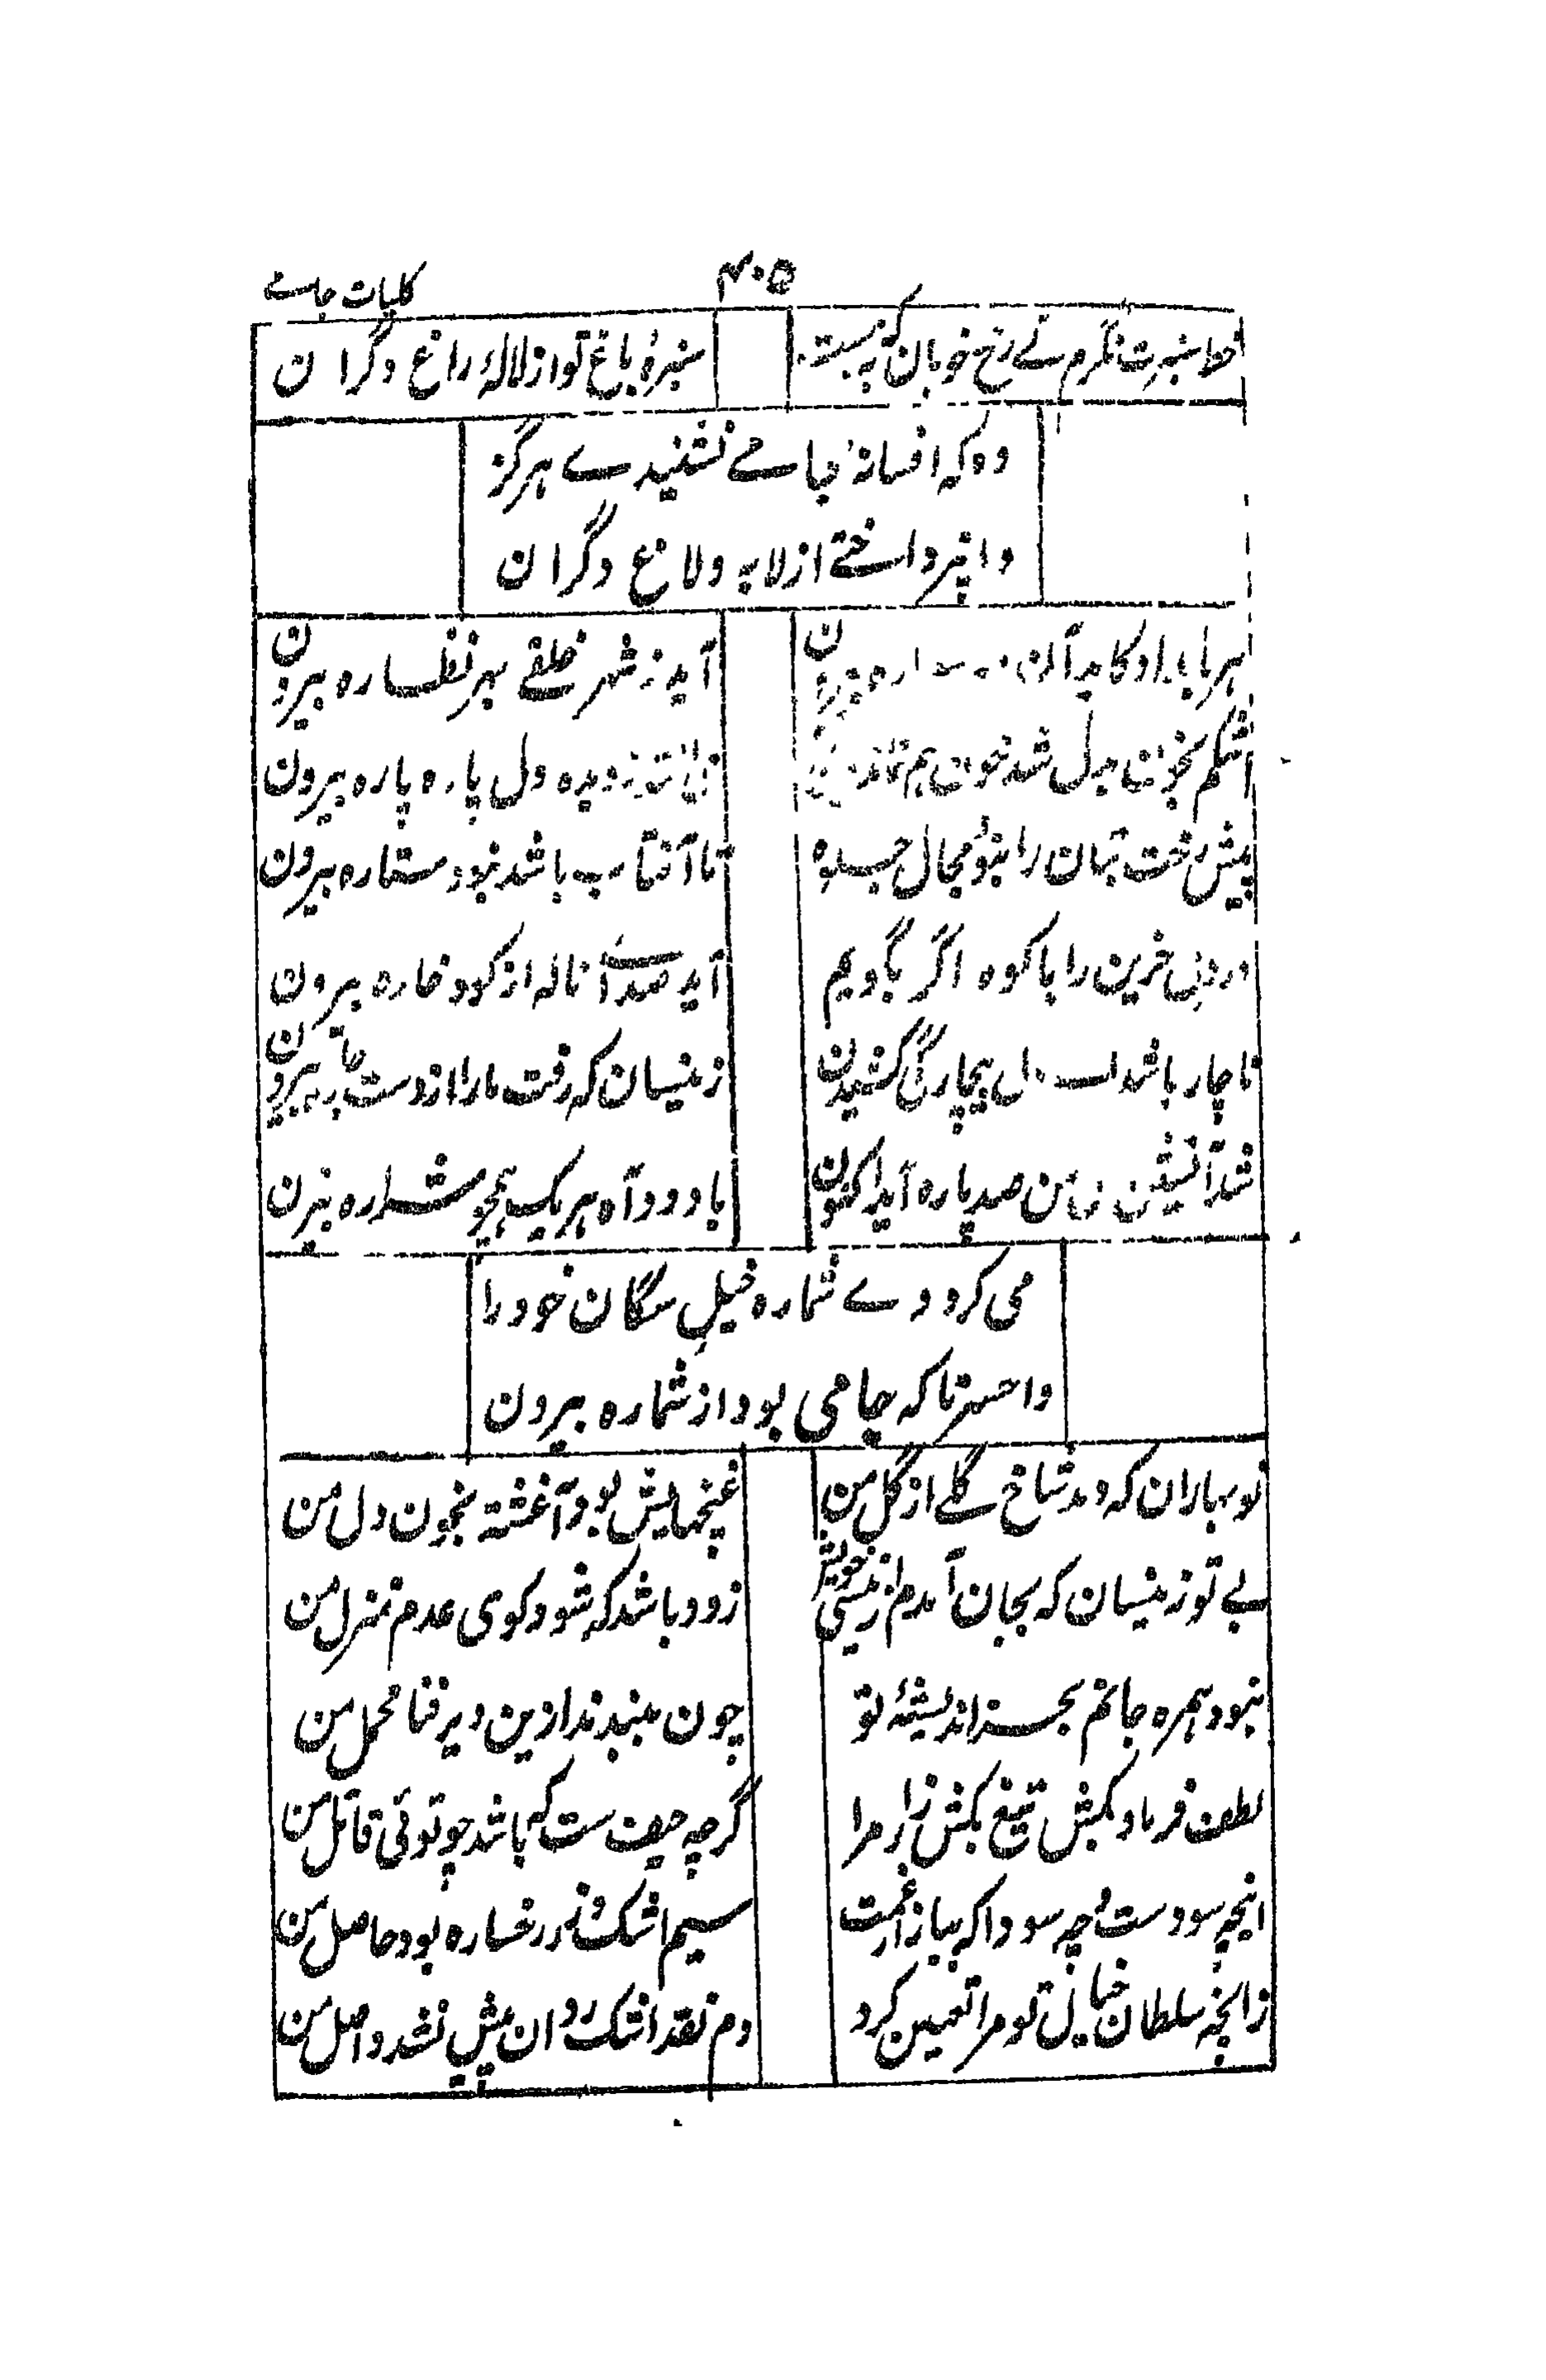 ۴۰۵
کلیات جامے
خط سبزت نگرم نے رخ خوبان که به ست
سبزهٔ باغ تو از لالهٔ راغ دگران
وه که افسانهٔ جامے نشنیدے هرگز
وا نپرداختے از لابه ولاغ دگران
هر بامداد کاید آن
آید ز شهر خلقے بهر نظاره بیرون
اشکم بخون مبدل شد خون هم نماند
دیده دل پاره پاره بیرون
پیش رخت بتان را نبود مجال جلوه
تا آفتاب باشد نبود ستاره بیرون
درد دل حزین را با کوه اگر بگویم
آید صداے ناله از کوه خاره بیرون
ناچار باشد بیچارگی کشیدن
زینسان که رفت مارا از دست چاره بیرون
شد آتشین من صد پاره آید اکنون
با دود آه هر یک همچو شراره بیرون
می کرد وے شماره خیل سگان خود را
واحسرتا که جامی بود از شماره بیرون
نوبهاران که دمد شاخ گلے از گل من
غنچهایش بود آغشته بخون دل من
بے تو زینسان که بجان آمدم از هستی خویش
زود باشد که شود کوی عدم منزل من
نبود همره جانم بجز اندیشهٔ تو
چون ببندند ازین دیر فنا محمل من
لطف فرما و بکش تیغ بکش زار مرا
گرچه حیف ست که باشد چو توئی قاتل من
اینچه سودست و چه سودا که ببازار غمت
سیم اشک و زر رخساره بود حاصل من
زانچه سلطان خیال تو مرا تعیین کرد
دم نقد اشک روان بیش نشد واصل من